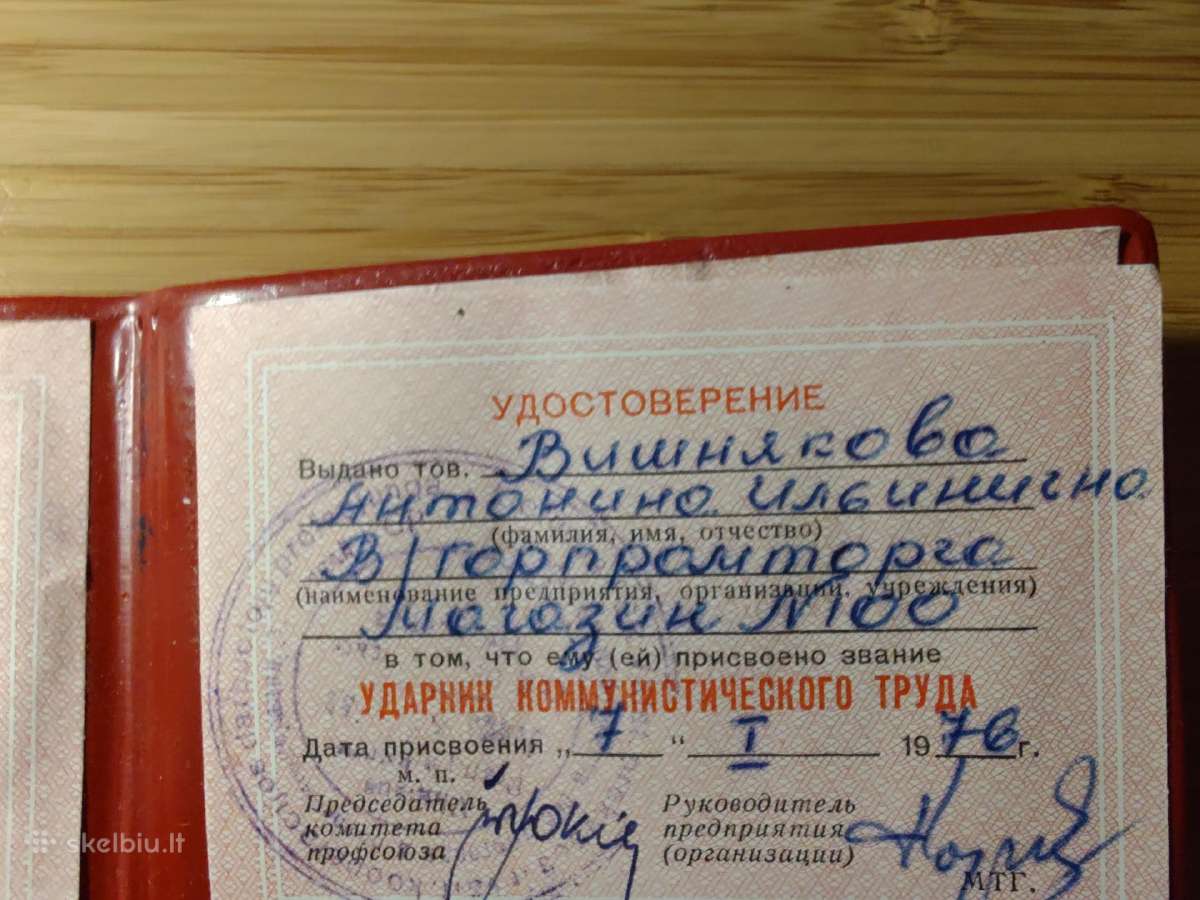 УДОСТОВЕРЕНИЕ
Выдано тов. Вишнякова
Антонина Ильинична
(фамилия, имя, отчество)
В/Горпромторга
(наименование предприятия, организации, учреждения)
Магазин N100
в том, что ему (ей) присвоено звание
УДАРНИК КОММУНИСТИЧЕСКОГО ТРУДА
Дата присвоения „ 7 “ I 1976г.
м. п.
Председатель комитета профсоюза
Руководитель предприятия (организации)
МТГ.
skelbiu.lt